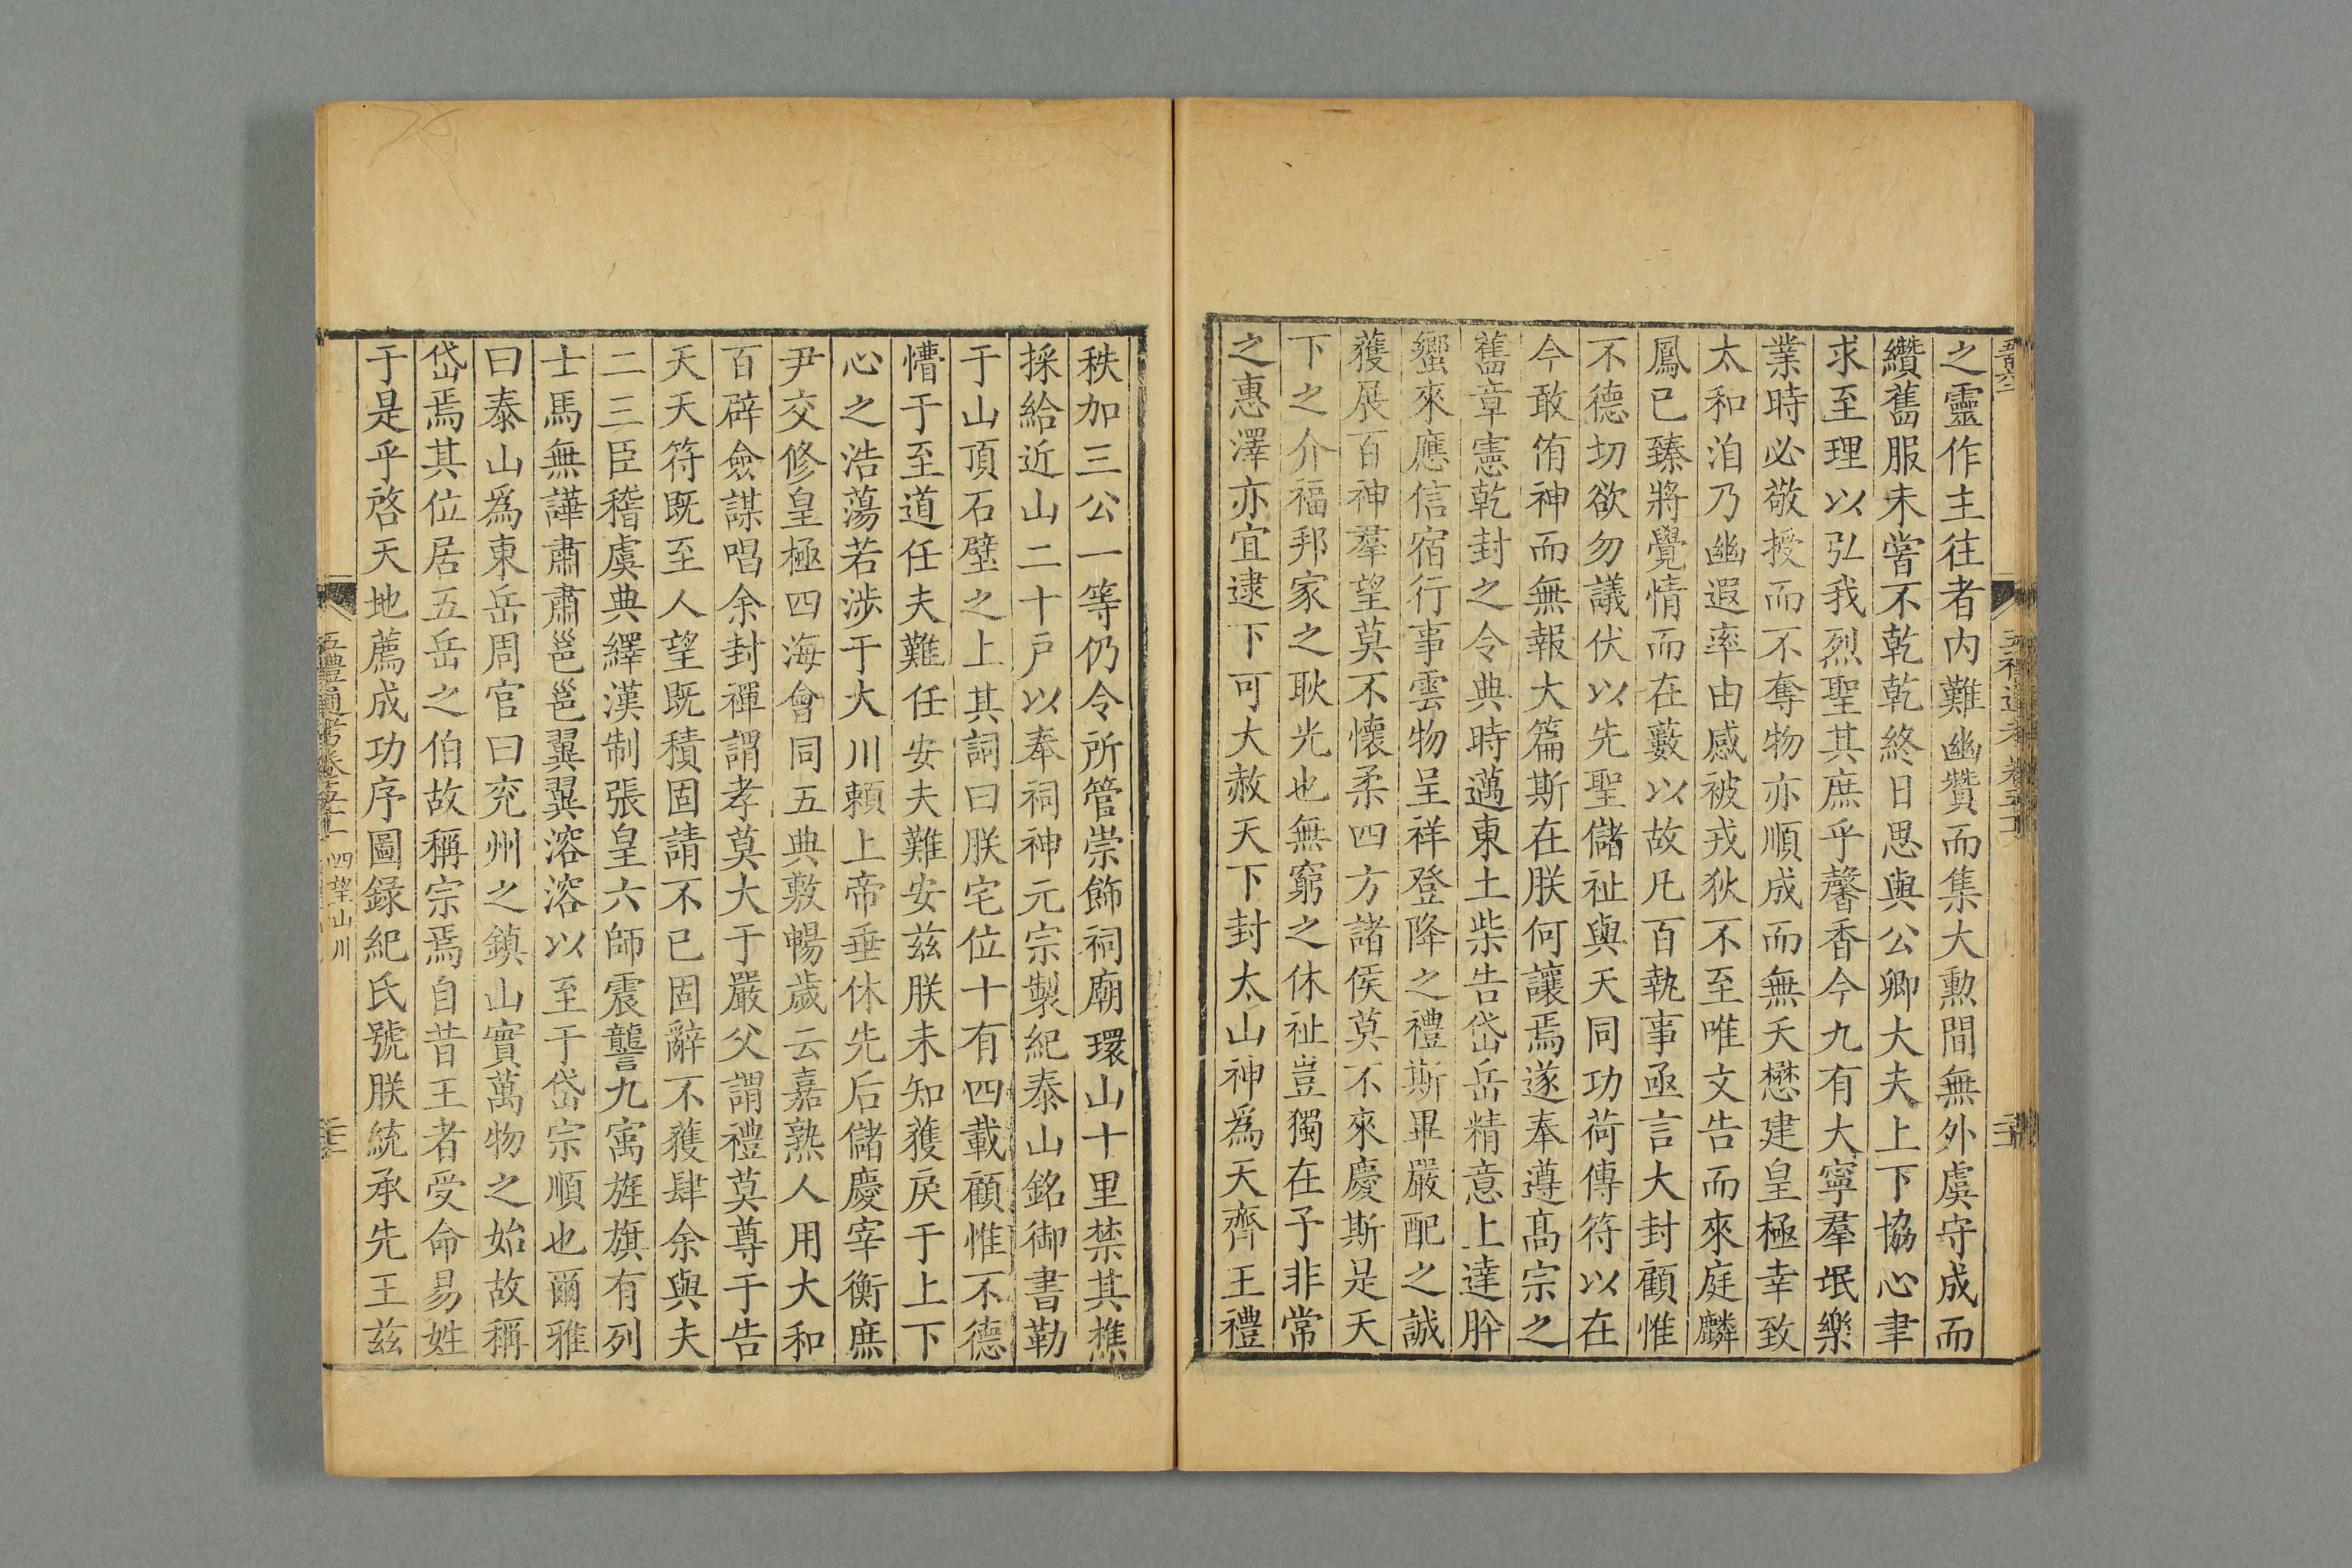 之靈作主往者内難幽贊而集大勲間無外虞守成而
纘舊服未嘗不乾乾終日思與公卿大夫上下協心聿
求至理以弘我烈聖其庶乎馨香今九有大寧羣氓樂
業時必敬授而不奪物亦順成而無夭懋建皇極幸致
太和洎乃幽遐率由感被戎狄不至唯文告而來庭麟
鳳已臻將覺情而在藪以故凡百執事亟言大封顧惟
不德切欲勿議伏以先聖儲祉與天同功荷傳符以在
今敢侑神而無報大篇斯在朕何讓焉遂奉遵髙宗之
舊章憲乾封之令典時邁東土柴告岱岳精意上達肸
蠁來應信宿行事雲物呈祥登降之禮斯畢嚴配之誠
獲展百神羣望莫不懷柔四方諸侯莫不來慶斯是天
下之介福邦家之耿光也無窮之休祉豈獨在予非常
之惠澤亦宜逮下可大赦天下封太山神為天齊王禮
秩加三公一等仍令所管崇飾祠廟環山十里禁其樵
採給近山二十户以奉祠神元宗製紀泰山銘御書勒
于山頂石壁之上其詞曰朕宅位十有四載顧惟不德
懵于至道任夫難任安夫難安兹朕未知獲戾于上下
心之浩蕩若涉于大川賴上帝垂休先后儲慶宰衡庶
尹交修皇極四海會同五典敷暢歲云嘉熟人用大和
百辟僉謀唱余封禪謂孝莫大于嚴父謂禮莫尊于告
天天符既至人望既積固請不已固辭不獲肆余與夫
二三臣稽虞典繹漢制張皇六師震讋九㝢旌旗有列
士馬無譁肅肅邕邕翼翼溶溶以至于岱宗順也爾雅
曰泰山為東岳周官曰兖州之鎮山實萬物之始故稱
岱焉其位居五岳之伯故稱宗焉自昔王者受命易姓
于是乎啓天地薦成功序圖録紀氏號朕統承先王兹
五禮通考卷 四望山川